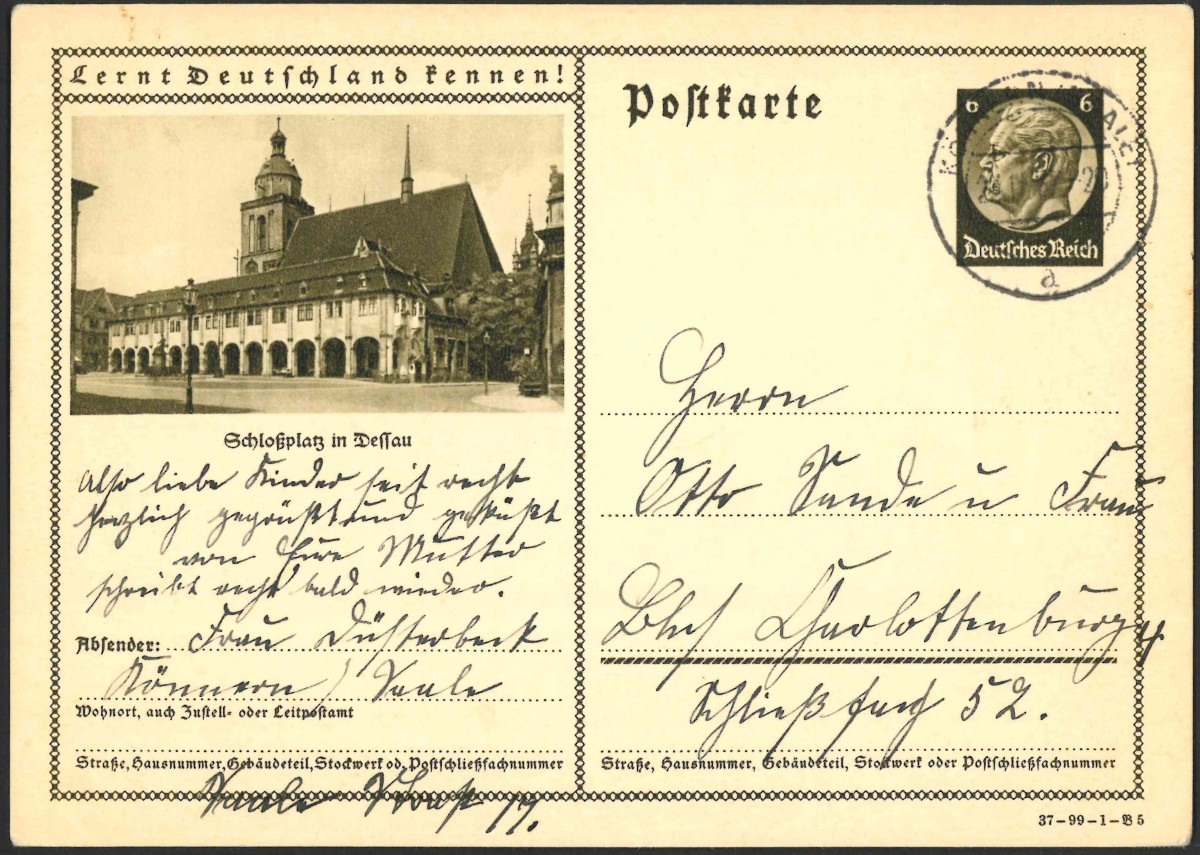 Lernt Deutschland kennen!
Schloßplatz in Dessau
Also liebe Kinder seit recht
herzlich gegrüßt und geküßt
von Eure Mutter
schreibt recht bald wieder.
Absender: Frau Düsterbeck
Könnern / Saale
Wohnort, auch Zustell- oder Leitpostamt
Straße, Hausnummer, Gebäudeteil, Stockwerk od. Postschließfachnummer
Saale Straß
Postkarte
6 6
Deutsches Reich
a
Herrn
Otto Sande u Frau
Charlottenburg
Schließfach 52.
Straße, Hausnummer, Gebäudeteil, Stockwerk oder Postschließfachnummer
37-99-1-B5